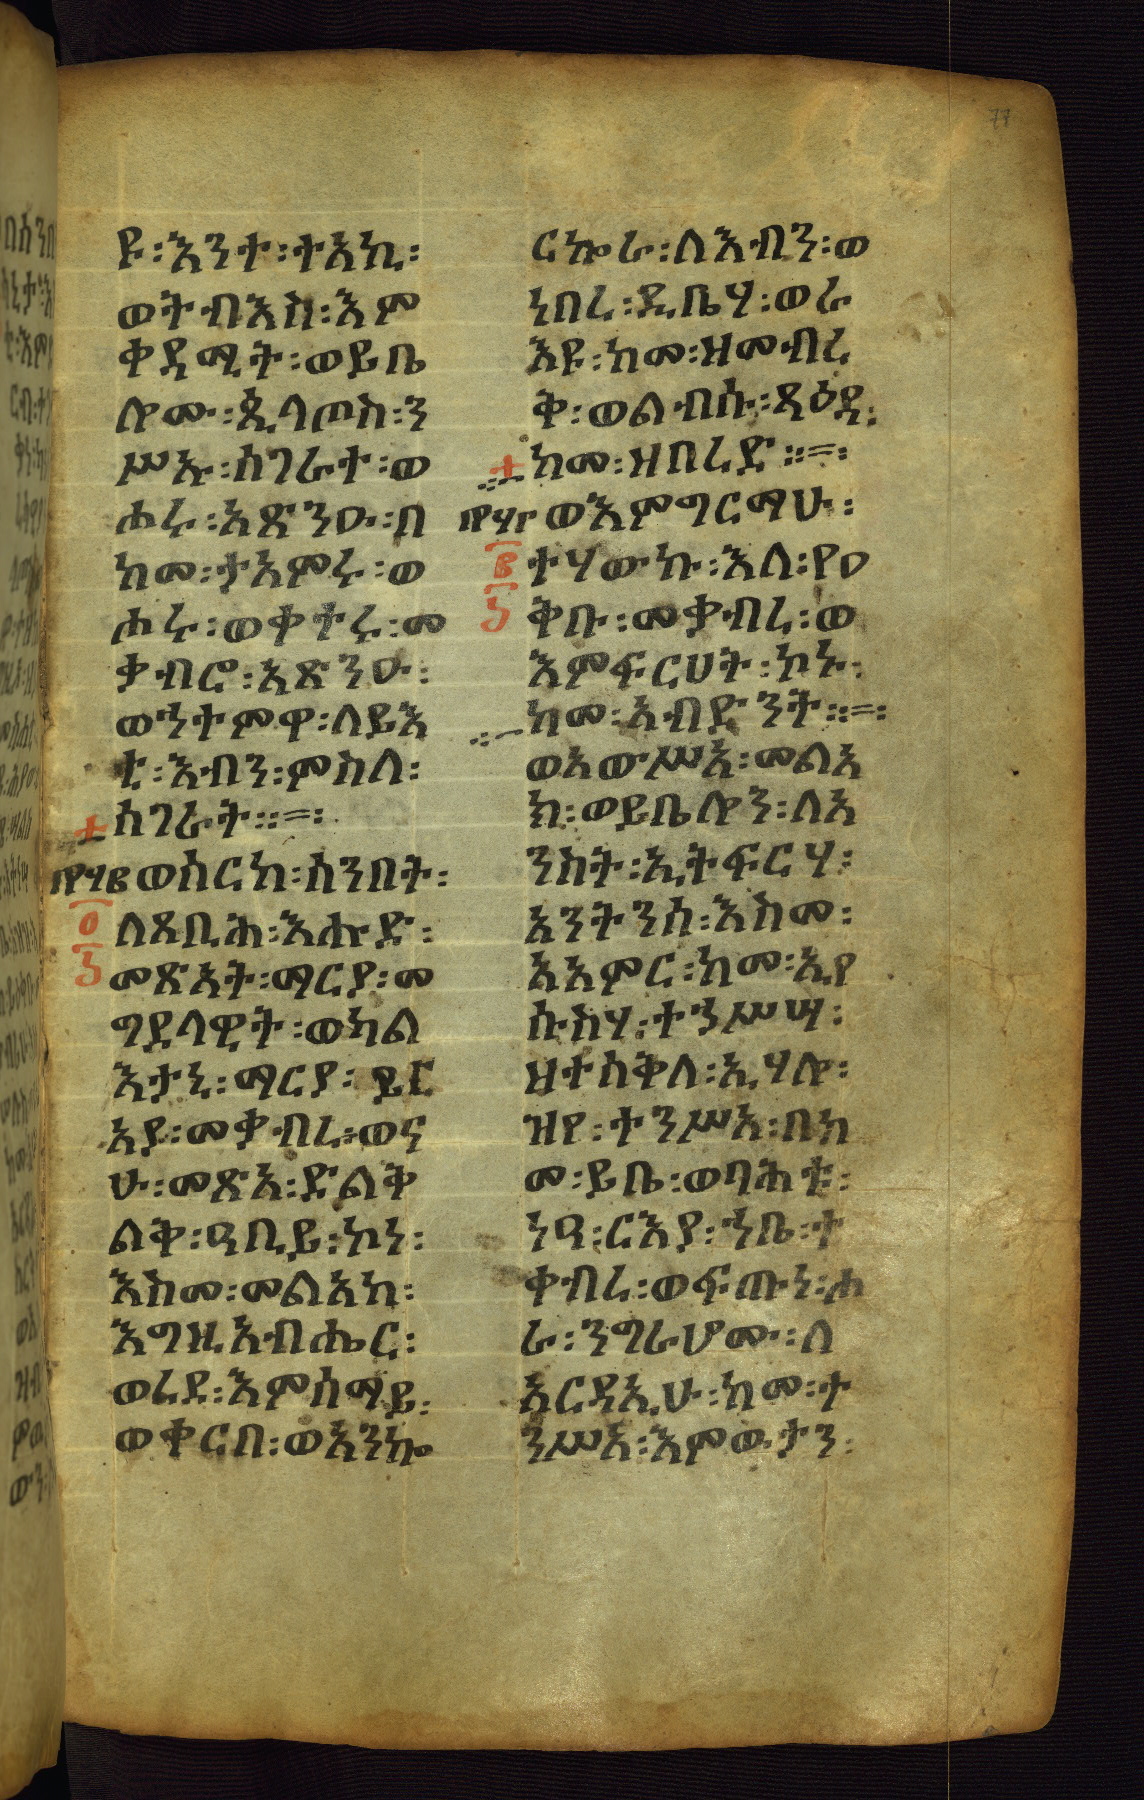 77
ዩ፡እንተ፡ተአኪ፡
ወትብእስ፡እም
ቀዳሚት፡ወይቤ
ሎሙ፡ጲላጦስ፡ን
ሥኡ፡ሰገራተ፡ወ
ሑሩ፡አጽንዑ፡በ
ከመ፡ታአምሩ፡ወ
ሖሩ፡ወቀተሩ፡መ
ቃብሮ፡አጽንዑ፡
ወኀተምዋ፡ለይእ
ቲ፡እብን፡ምስለ፡
ሰገራት።=፡
ወሰርከ፡ሰንበት፡
ለጸቢሕ፡እሑድ፡
መጽአት፡ማርያ፡መ
ግደላዊት፡ወካል
እታኒ፡ማርያ፡ይር
አያ፡መቃብረ፡ወና
ሁ፡መጽአ፡ድልቅ
ልቅ፡ዓቢይ፡ኮነ፡
እስመ፡መልአከ፡
እግዚአብሔር፡
ወረደ፡እምሰማይ፡
ወቀርበ፡ወአንኰ
ርኰራ፡ለእብን፡ወ
ነበረ፡ዲቤሃ፡ወራ
እዩ፡ከመ፡ዝመብረ
ቅ፡ወልብሱ፡ጻዕዳ፡
ከመ፡ዘበረድ።=፡
ወእምግርማሁ፡
ተሃውኩ፡እለ፡የዐ
ቅቡ፡መቃብረ፡ወ
እምፍርሀት፡ኮኑ፡
ከመ፡አብድንት።=፡
ወአውሥአ፡መልአ
ክ፡ወይቤሎን፡ለአ
ንስት፡ኢትፍርሃ፡
አንትንሰ፡እስመ፡
አአምር፡ከመ፡ኢየ
ሱስሃ፡ተኀሥሣ፡
ዘተሰቅለ፡ኢሃሎ፡
ዝየ፡ተንሥአ፡በከ
መ፡ይቤ፡ወባሕቱ፡
ነዓ፡ርእያ፡ኀቤ፡ተ
ቀብረ፡ወፍጡነ፡ሑ
ራ፡ንግራሆሙ፡ለ
አርዳኢሁ፡ከመ፡ተ
ንሥአ፡እምዉታን፡